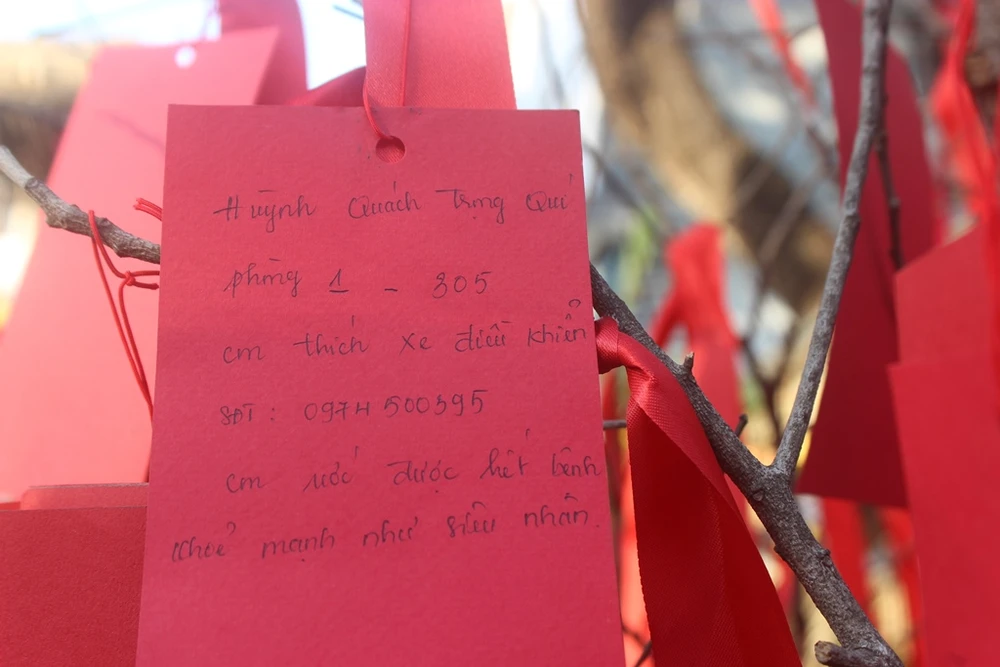 Huỳnh Quách Trọng Quí
phòng 1 - 305
em thích xe điều khiển
SĐT : 0974500395
em ước được hết bệnh
khoẻ mạnh như siêu nhân.